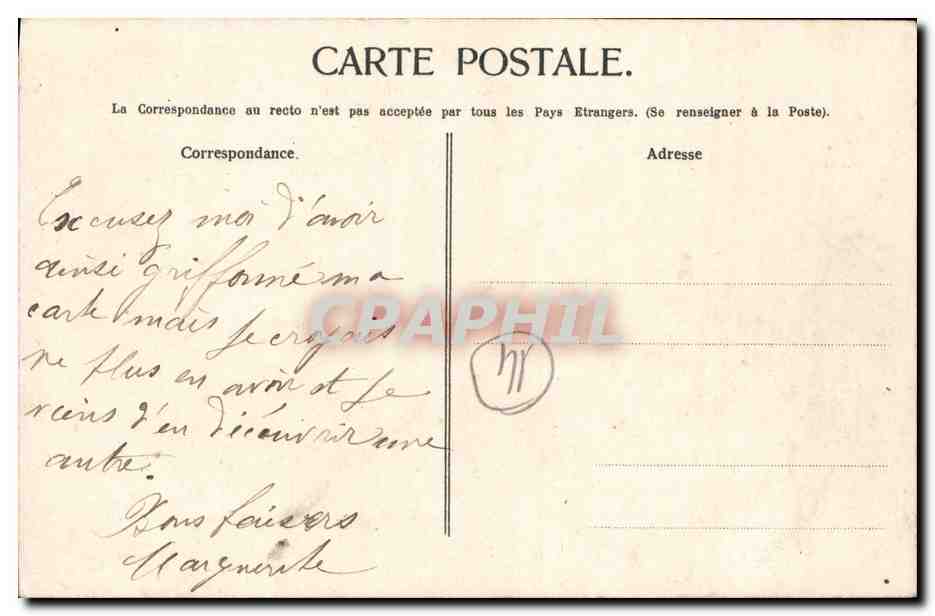 CARTE POSTALE.
La Correspondance au recto n'est pas acceptée par tous les Pays Etrangers. (Se renseigner à la Poste).
Correspondance.
Adresse
Excusez moi d'avoir
ainsi griffonné ma
carte mais je croyais
ne plus en avoir et je
viens d'en découvrir une
autre.
Bons baisers
Marguerite
CPAPHIL